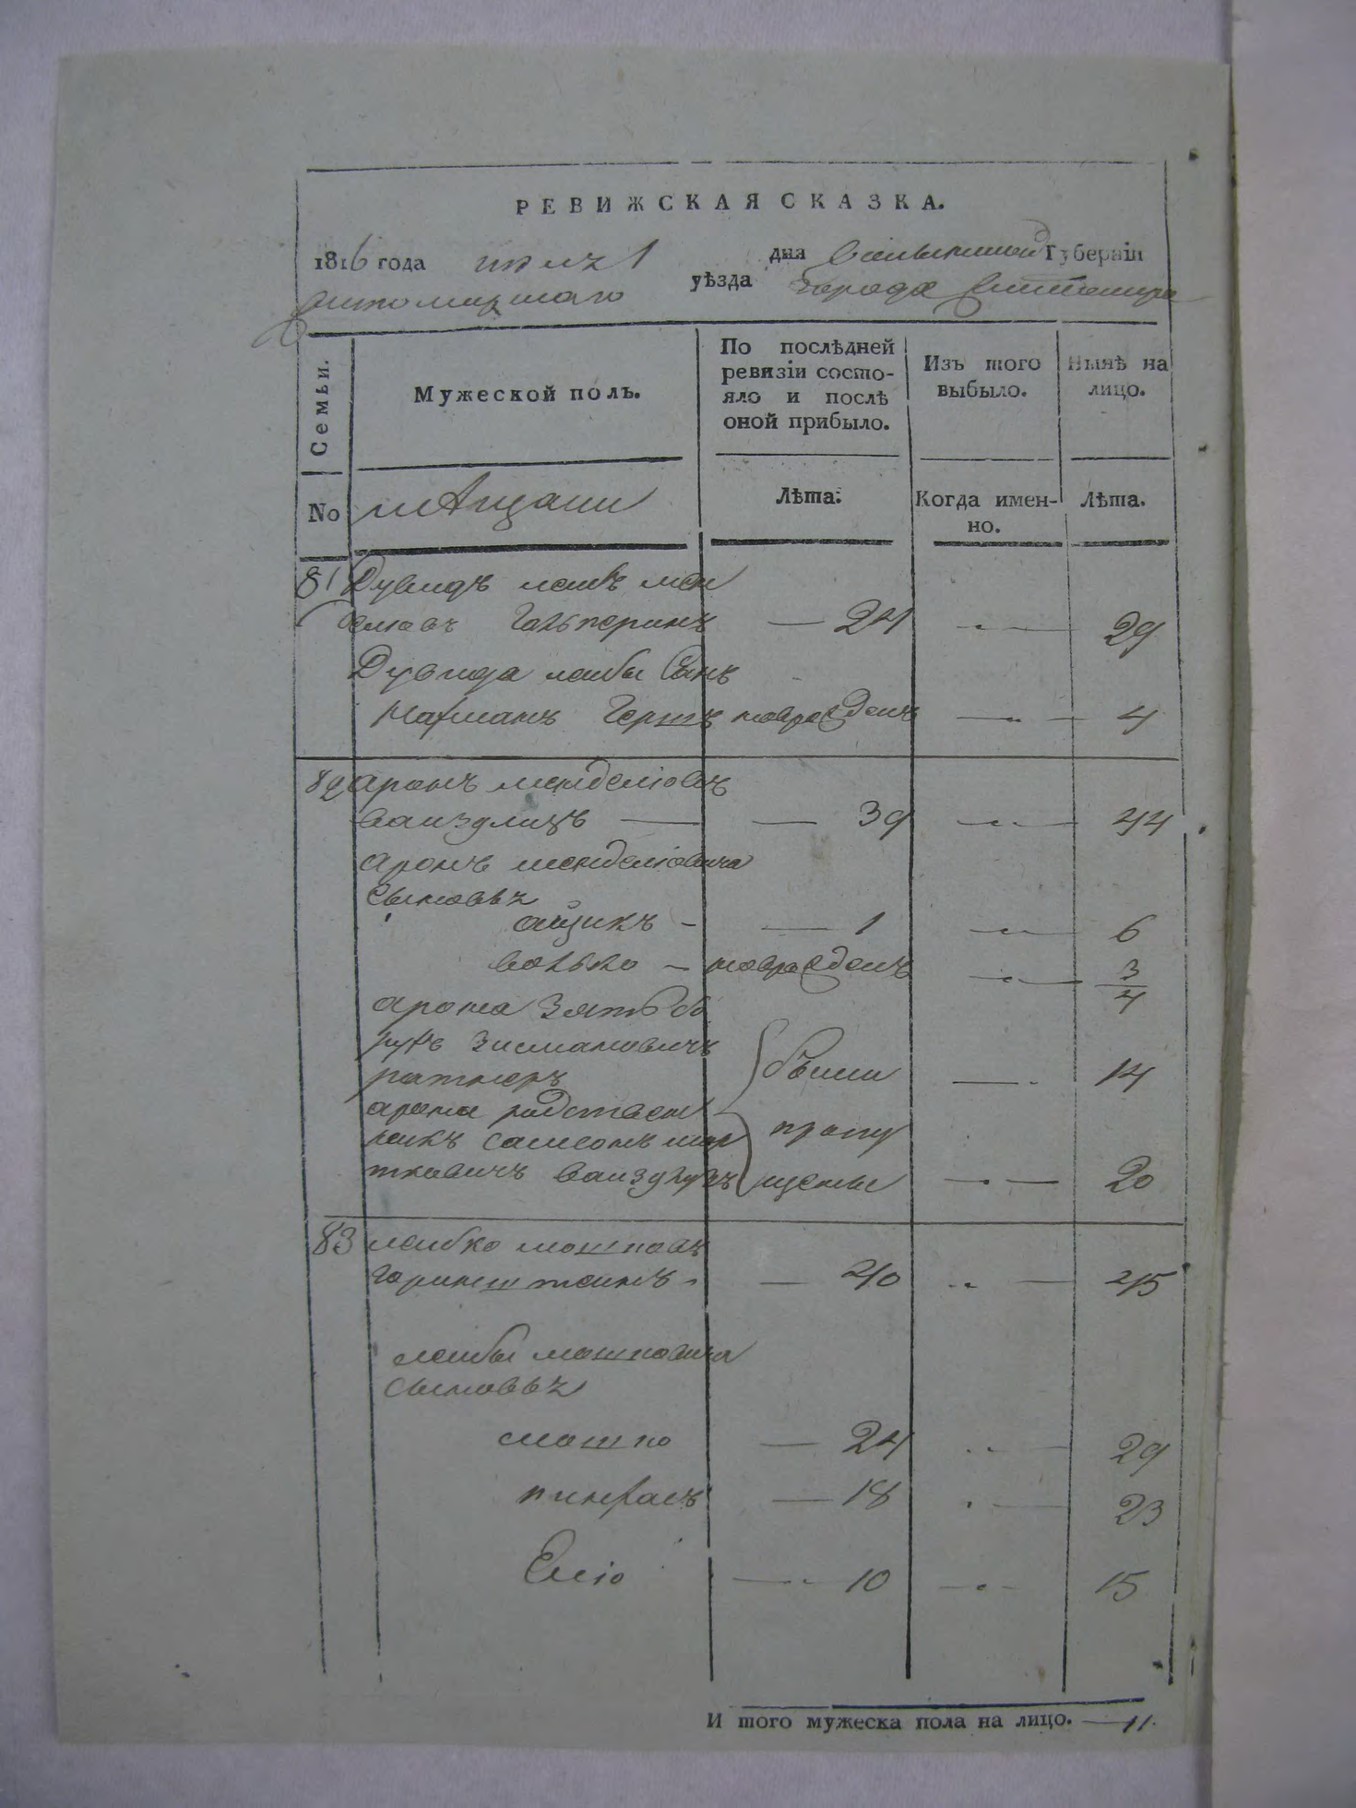 РЕВИЖСКАЯ СКАЗКА.
1816 года июля 1 дня Волынской Губерніи
Житомирскаго уѣзда города Житомира
Семьи.
Мужеской полъ.
По послѣдней ревизіи состояло и послѣ оной прибыло.
Изъ того выбыло.
Нынѣ на лицо.
No
мѣщани
Лѣта.
Когда именно.
Лѣта.
81 Дувидъ леибъ мен
деліовъ Гальперинъ — 24 — 29
Дувида леибы Сынъ
Нахманъ Гершъ новорожденъ — 4
82 аронъ менделіовъ
ваизулицъ — — 39 — 44
аронъ менделіовича
сыновья
аицикъ — — 1 — 6
волько — новорожденъ — 3/4
арона зять
зисмановичъ
ратнеръ — 14
арона родствен
никъ самсонъ мор
тковичъ — 20
были
пропу
щены
83 леибко мошковъ
горинштеинъ — 40 — 45
леибы мошковича
сыновья
мошко — 24 — 29
пинхасъ — 18 — 23
Еліо — 10 — 15
И того мужеска пола на лицо. — 11.